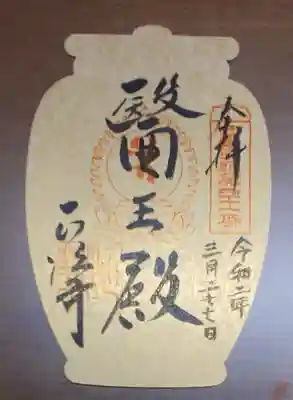 奉拝
令和二年
三月二十七日
醫王殿
正法寺